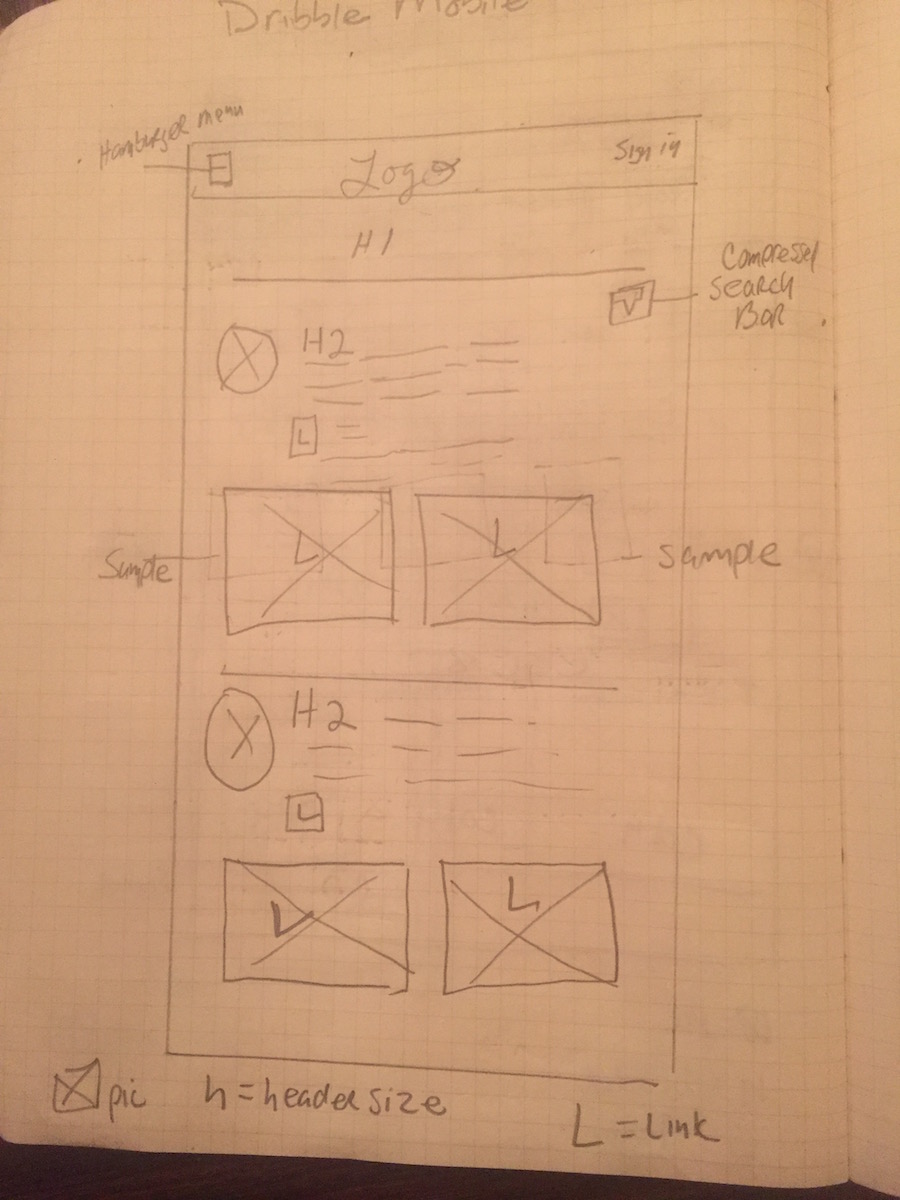 Dribble Mobile
Hamburger menu
Logo
Sign in
H1
Compressed
Search
Bar
V
H2
L
L
L
Sample
Sample
H2
L
L
L
pic
h=header size
L = Link